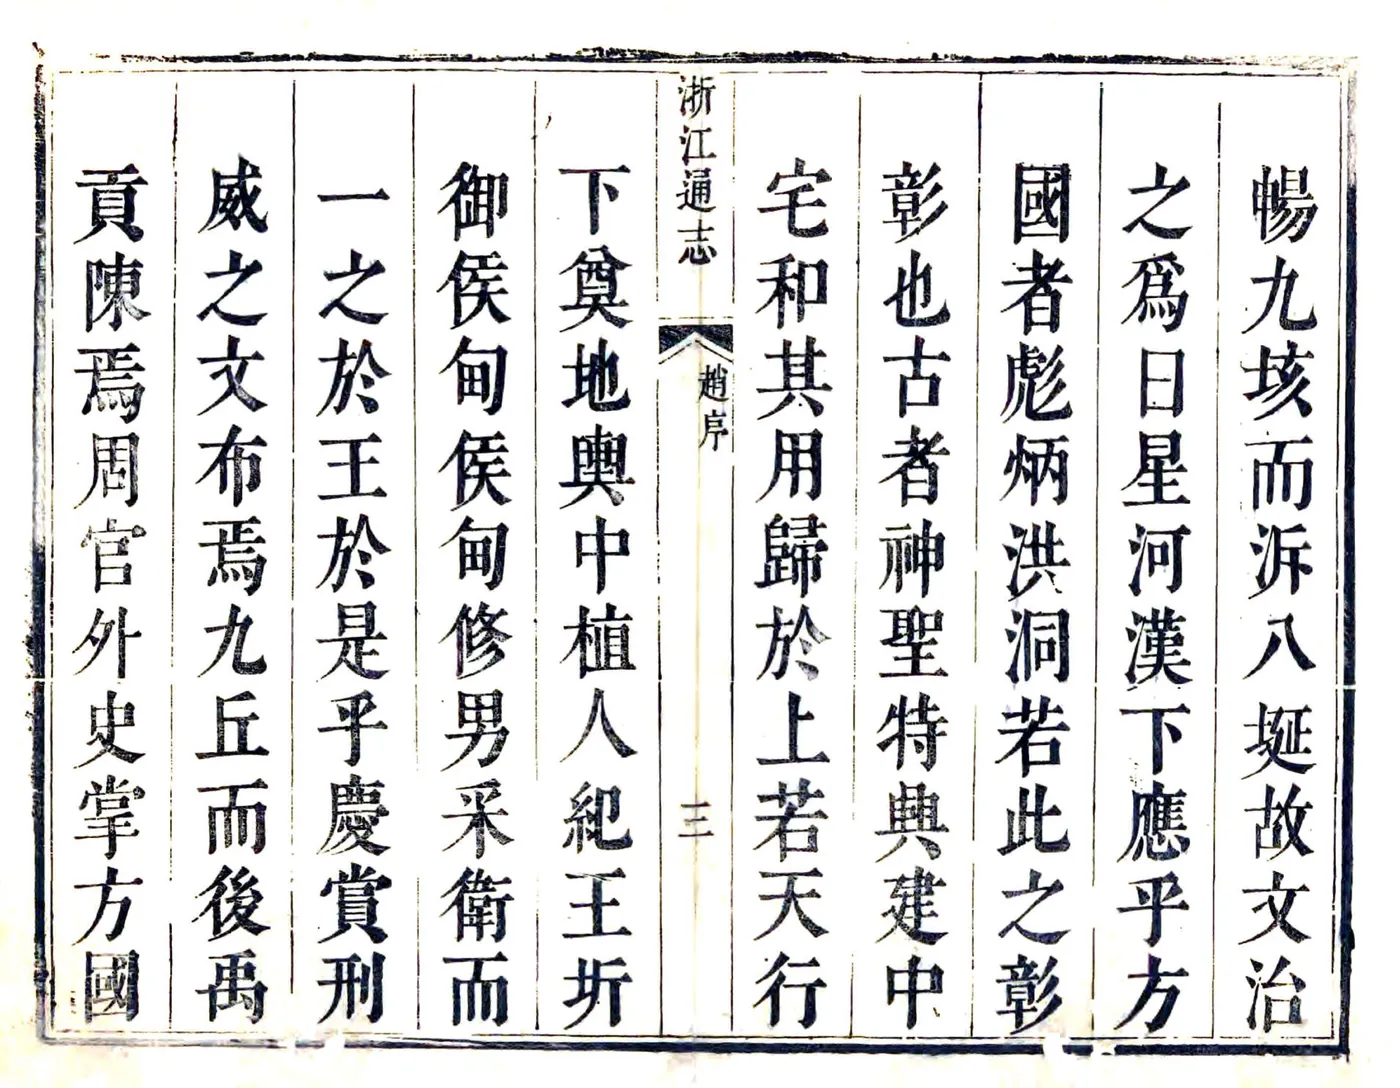 暢九垓而泝八埏故文治
之爲日星河漢下應乎方
國者彪炳洪洞若此之彰
彰也古者神聖特典建中
宅和其用歸於上若天行
浙江通志
趙序
三
下奠地輿中植人紀王圻
御侯甸侯甸修男采衛而
一之於王於是乎慶賞刑
威之文布焉九丘而後禹
貢陳焉周官外史掌方國